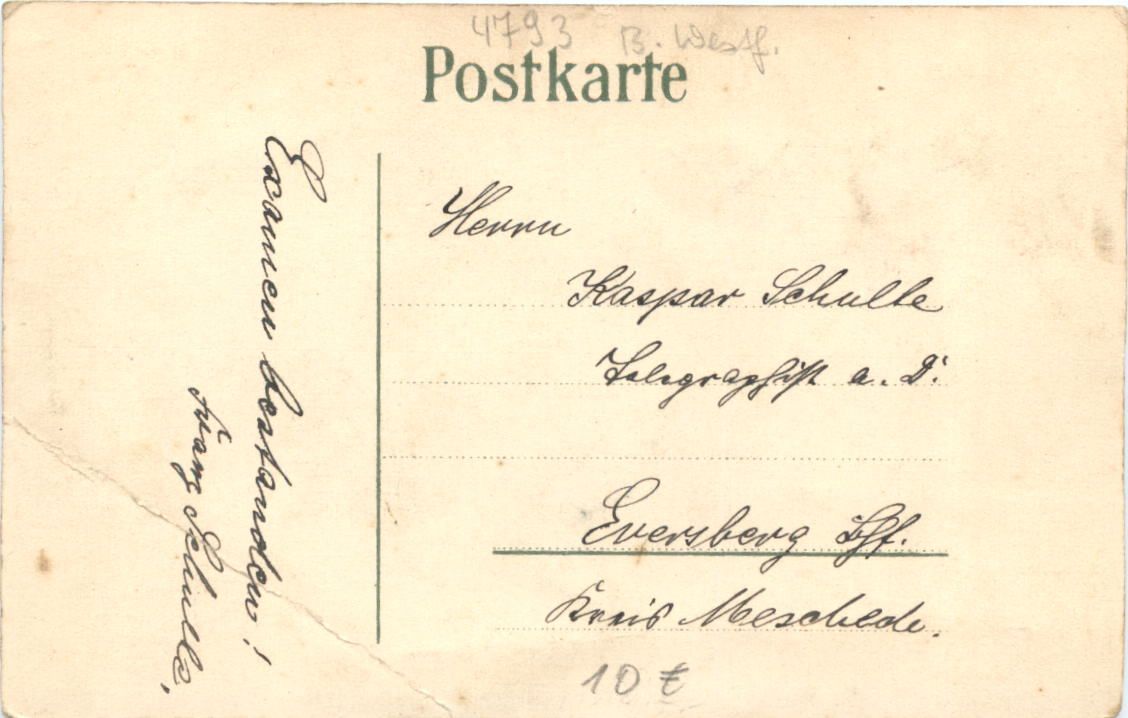 4793 B. Westf.
Postkarte
Examen bestanden!
Franz Schulte.
Herrn
Kaspar Schulte
Telegraphist a. D.
Eversberg
Kreis Meschede.
10 €